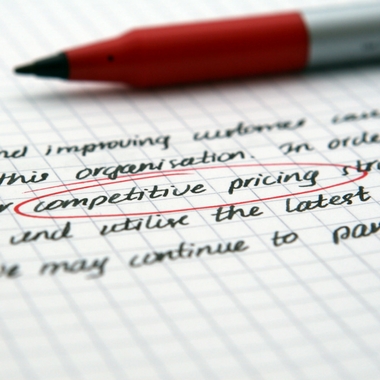 improving customer
this organisation. In order
competitive pricing
and utilise the latest
may continue to